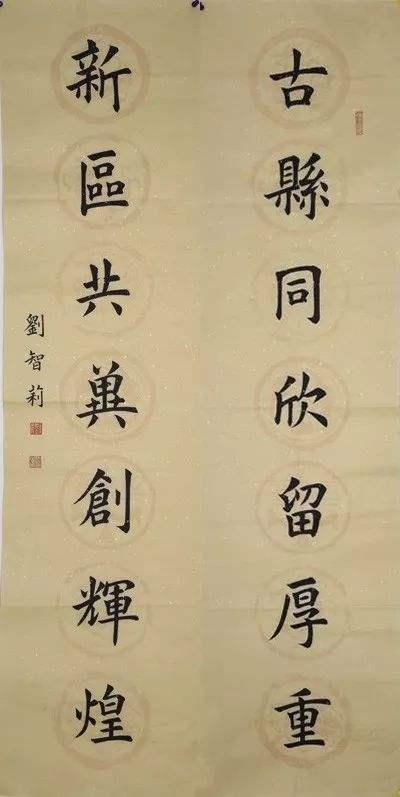 古縣同欣留厚重
新區共冀創輝煌
劉智莉